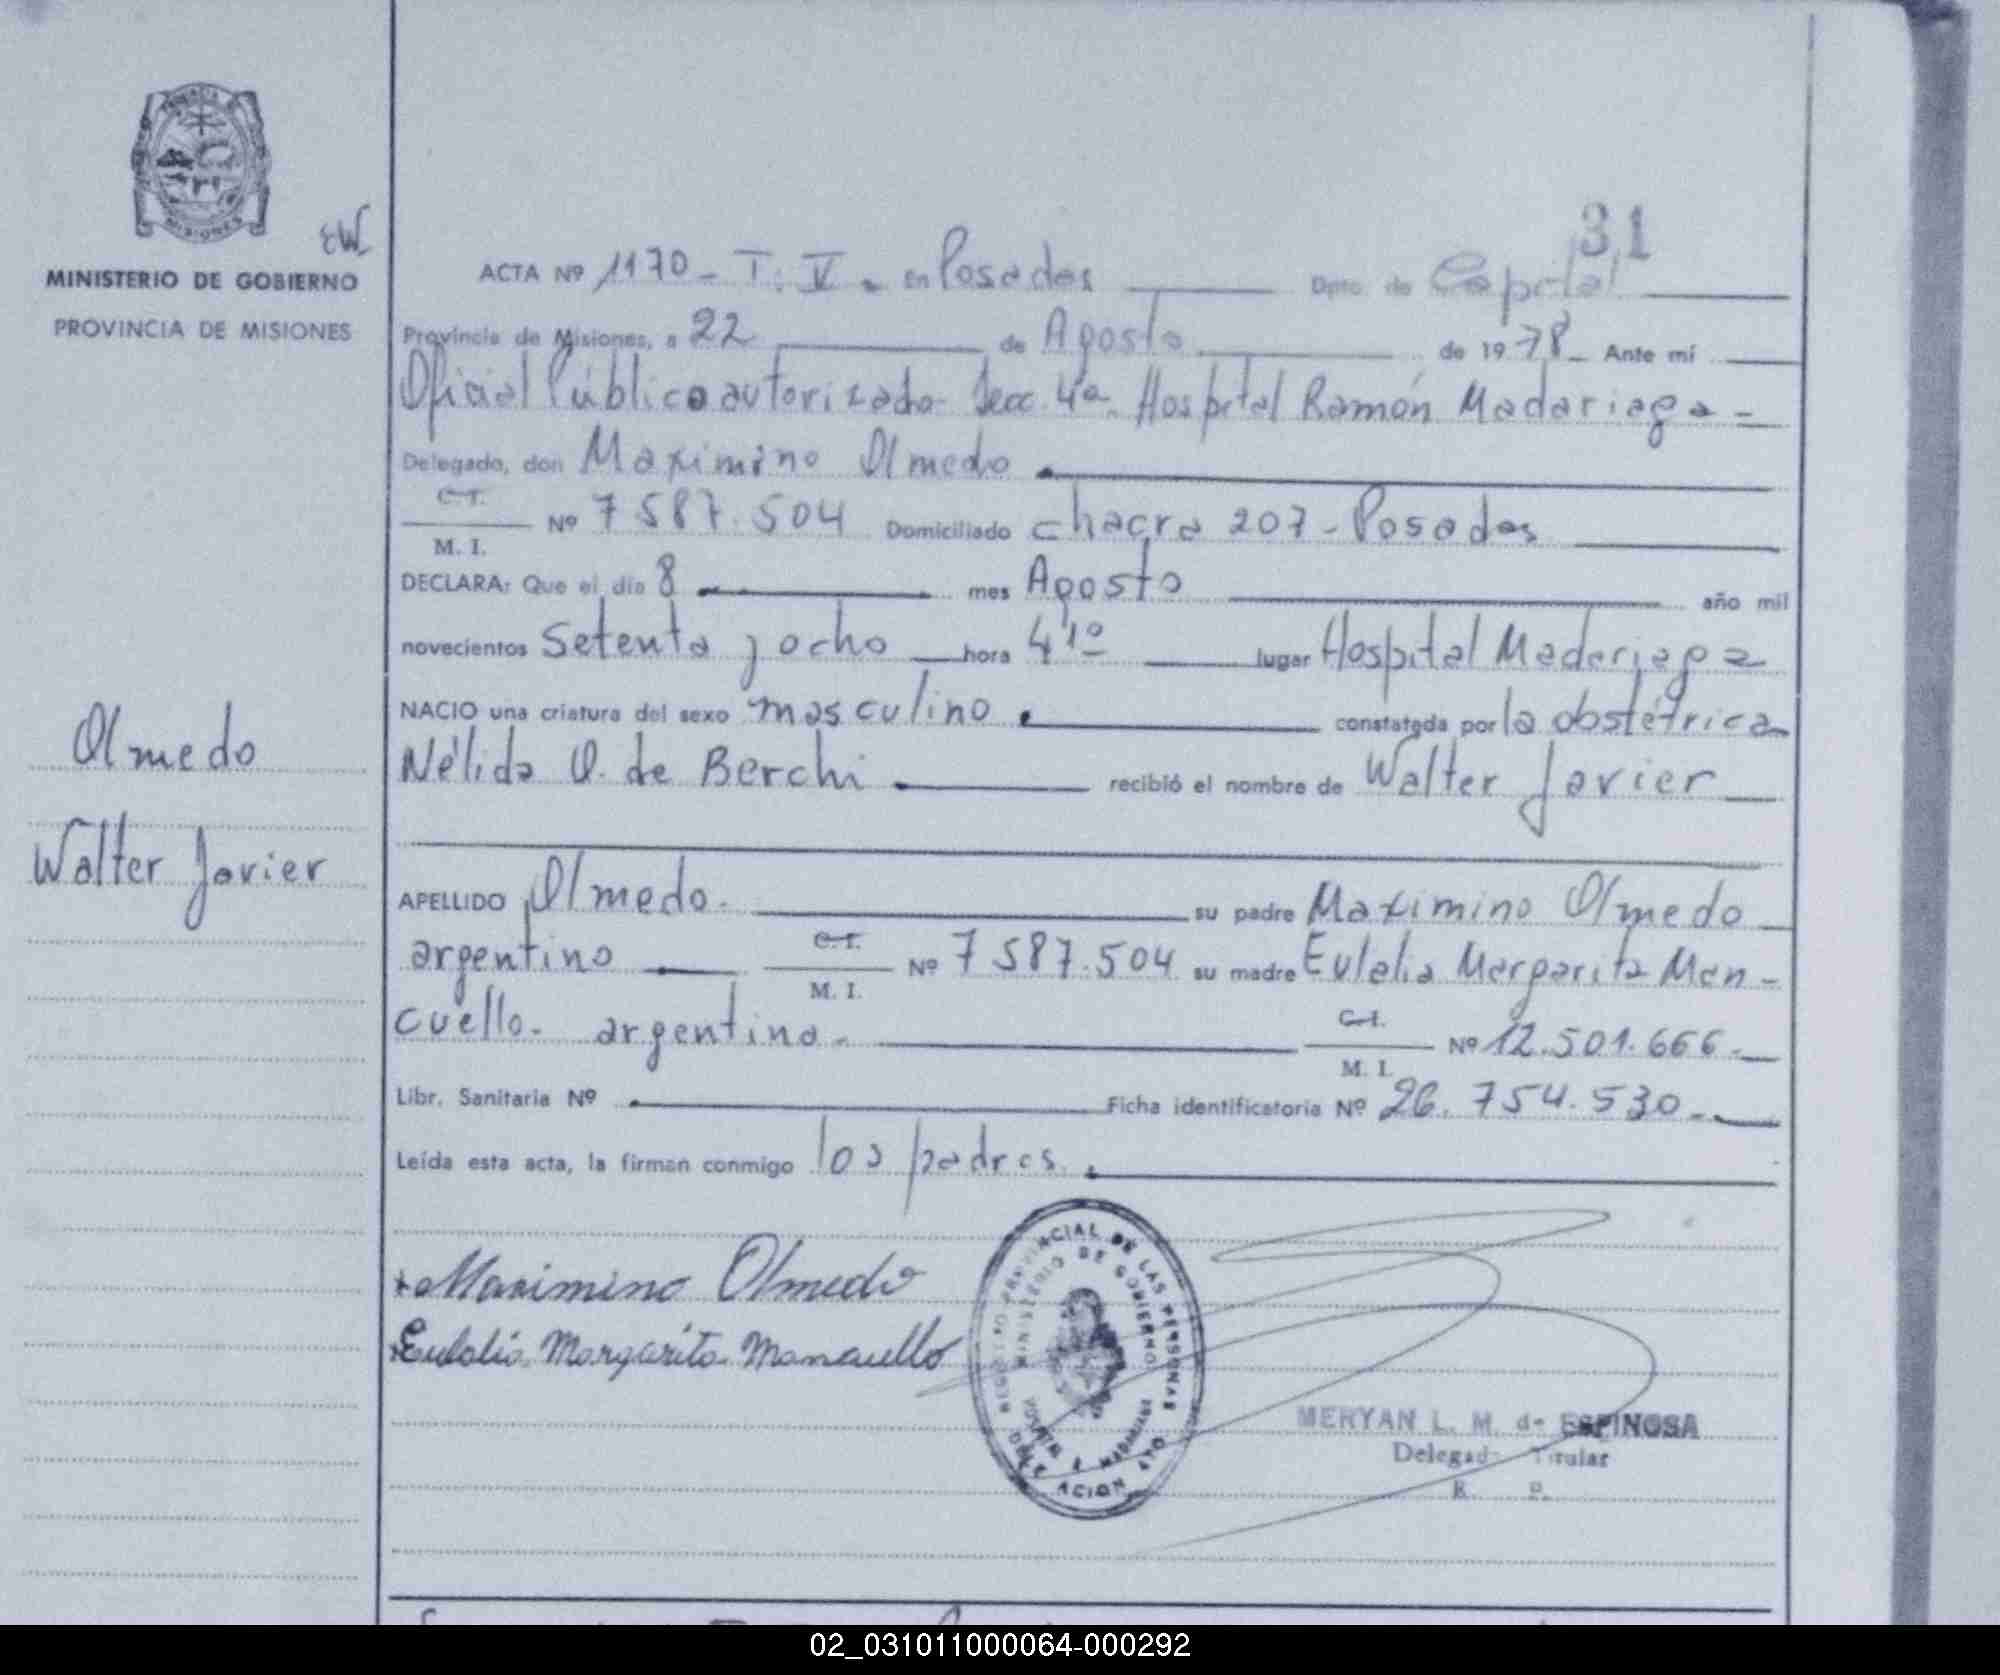 PROVINCIA DE
MISIONES
EW
MINISTERIO DE GOBIERNO
PROVINCIA DE MISIONES
Olmedo
Walter Javier
31
ACTA Nº 1170 - T. V - en Posadas Dpto. de Capital
Provincia de Misiones, a 22 de Agosto de 1978 - Ante mí
Oficial Público autorizado Secc. 4a. Hospital Ramón Madariaga -
Delegado, don Maximino Olmedo
C. I.
M. I. Nº 7587.504 Domiciliado chacra 207 - Posadas
DECLARA: Que el día 8 mes Agosto año mil
novecientos setenta y ocho hora 4'10 lugar Hospital Madariaga
NACIO una criatura del sexo masculino constatada por la obstétrica
Nélida O. de Berchi recibió el nombre de Walter Javier
APELLIDO Olmedo. su padre Maximino Olmedo
argentino C. I. M. I. Nº 7587.504 su madre Eulalia Margarita Man-
cuello - argentina - C. I. M. I. Nº 12.501.666 -
Libr. Sanitaria Nº Ficha identificatoria Nº 26.754.530 -
Leída esta acta, la firman conmigo los padres.
Maximino Olmedo
Eulalia Margarita Mancuello
REGISTRO PROVINCIAL DE LAS PERSONAS
MINISTERIO DE GOBIERNO
MERYAN L. M. de ESPINOSA
Delegada Titular
02_031011000064-000292